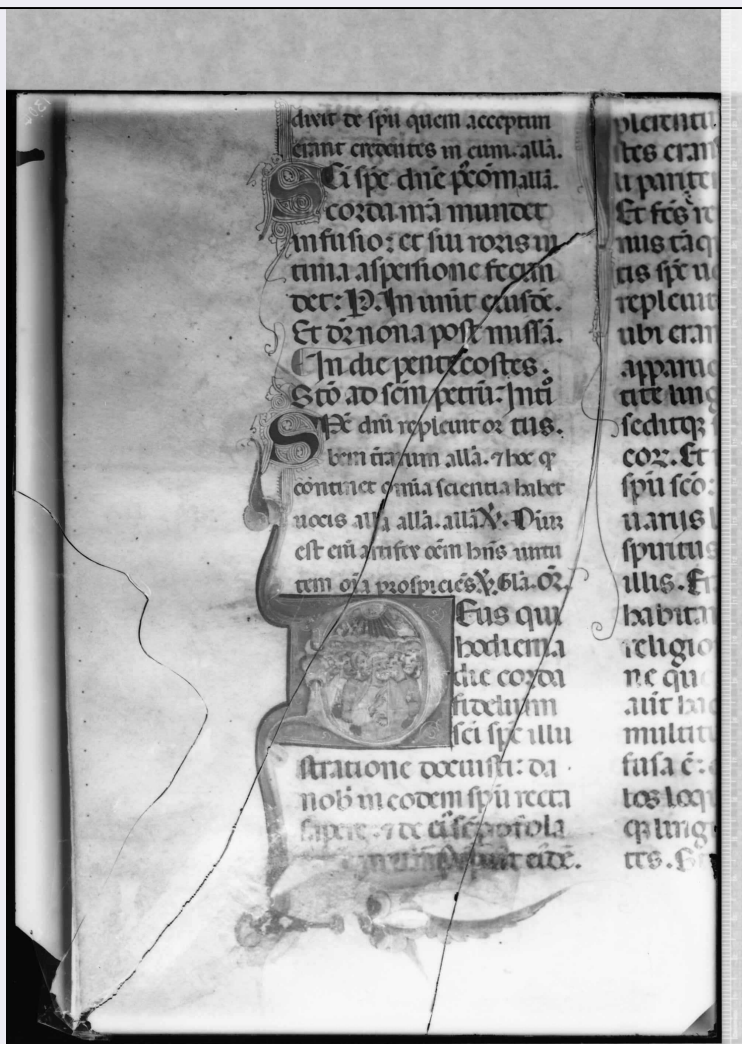 dixit de spū quem accepturi
erant credentes in eum. allā.
Sci spc dnē p̄com allā.
corda nr̄a mundet
infusio: et sui roris in
tima aspersione fecun
det: P. In unit̄ eiusdē.
Et dr̄ nona post missā.
In die pentecostes.
Stō ad scm̄ petrū: Intr̄
Spc dn̄i repleuit or tus.
bem trarum allā. ⁊ hoc q̄
continet omīa scientia habet
uocis allā allā. allā. V̄. Oniz
est eni artifex oēm hn̄s uirtu
tem oīa prospiciēs. V̄. Glā. Or̄.
Deus qui
hodierna
die corda
fidelium
sci spc illu
stratione docuisti: da
nob̄ in eodem spū recta
sapere. ⁊ de ei sēp
eidē.
pleientu
tes eran
Et fc̄s re
nus tāq
tis spc ue
repleuit
ubi eran
apparue
tite ling
seditq̄
cor. Et
spū scō:
uariis l
spiritus
illis. Er
habitan
religio
ne que
aut hac
multitu
fusa ē:
los loq
q̄ lingu
tes.